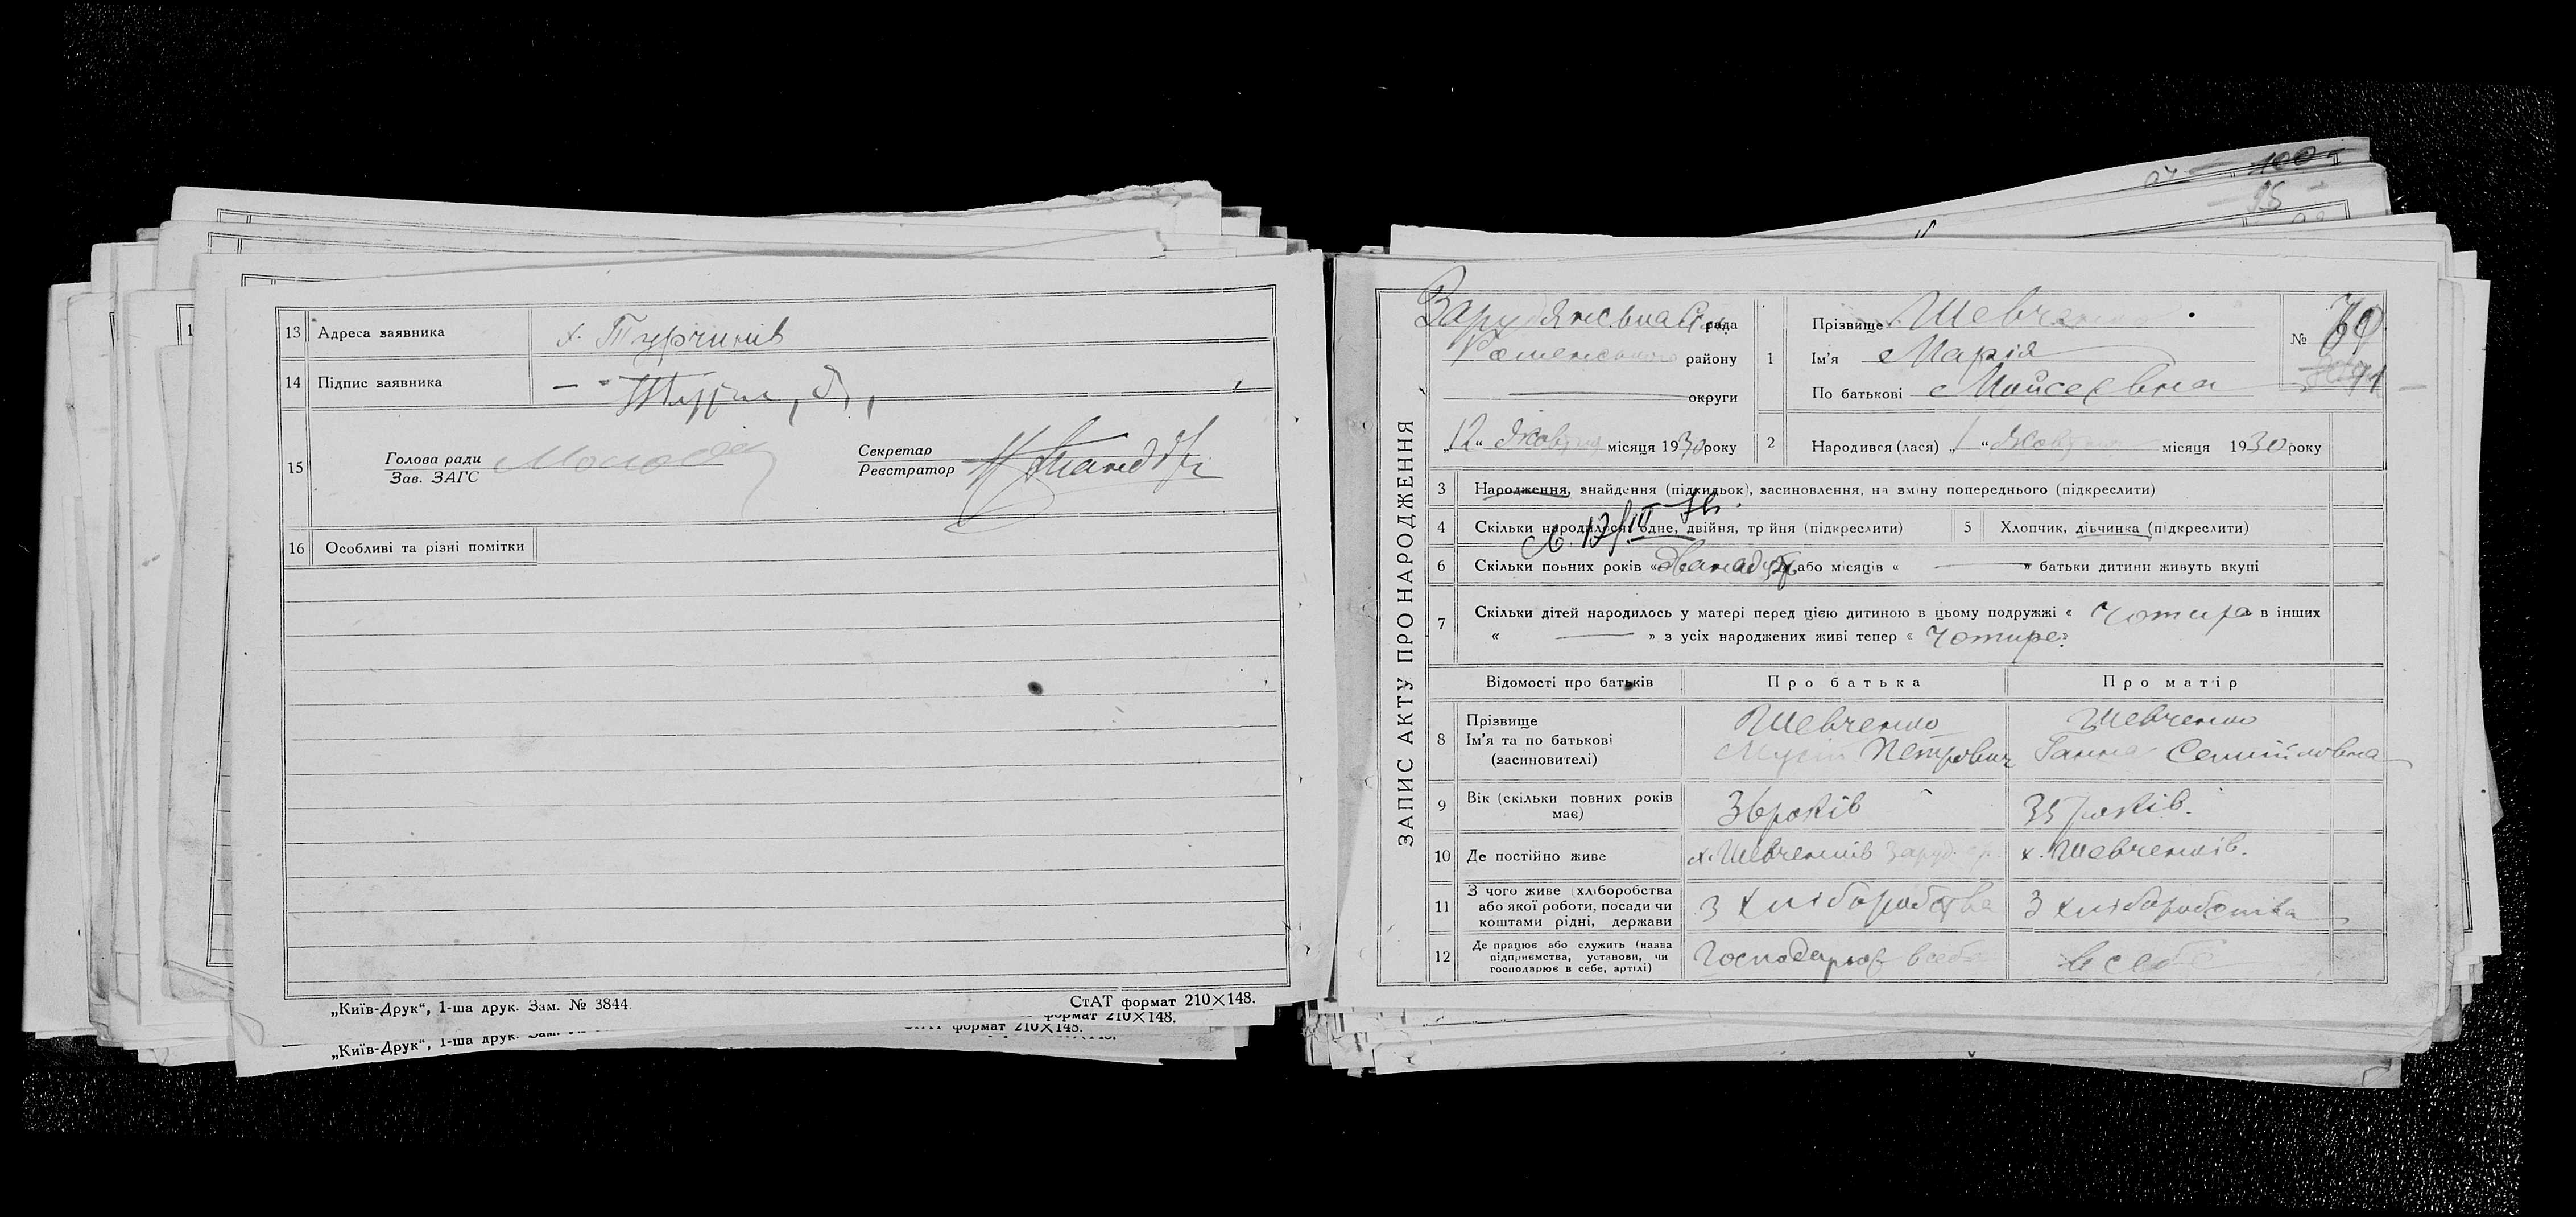 13 Адреса заявника х. Турчинів
14 Підпис заявника
15 Голова ради
Зав. ЗАГС
Секретар
Реєстратор
16 Особливі та різні помітки
„Київ-Друк“, 1-ша друк. Зам. № 3844.
СтАТ формат 210×148.
формат 210×148.
СтАТ формат 210×148.
„Київ-Друк“, 1-ша друк. Зам.
100
95
ЗАПИС АКТУ ПРО НАРОДЖЕННЯ
Зарудянська сіль рада
Роменського району
округи
„12“ Жовтня місяця 1930 року
1 Прізвище Шевченко
Ім'я Марія
По батькові Мойсеєвна
№ 69
71
2 Народився (лася) „1“ Жовтня місяця 1930 року
3 Народження, знайдення (підкидьок), засиновлення, на зміну попереднього (підкреслити)
4 Скільки народилося: одне, двійня, трійня (підкреслити)
5 Хлопчик, дівчинка (підкреслити)
6 Скільки повних років « або місяців « — » батьки дитини живуть вкупі
7 Скільки дітей народилось у матері перед цією дитиною в цьому подружжі « Чотири в інших
« — » з усіх народжених живі тепер « Чотире»
Відомості про батьків Про батька Про матір
8 Прізвище Шевченко Шевченко
Ім'я та по батькові Мусій Петрович Ганна Семийловна
(засновителі)
9 Вік (скільки повних років має) 36 років 35 років.
10 Де постійно живе х. Шевченків Заруд. х. Шевченків.
11 З чого живе (хліборобства
або якої роботи, посади чи
коштами рідні, держави З хліборобства З хліборобства
12 Де працює або служить (назва
підприємства, установи, чи
господарює в себе, артілі) Господарює в себе в себе